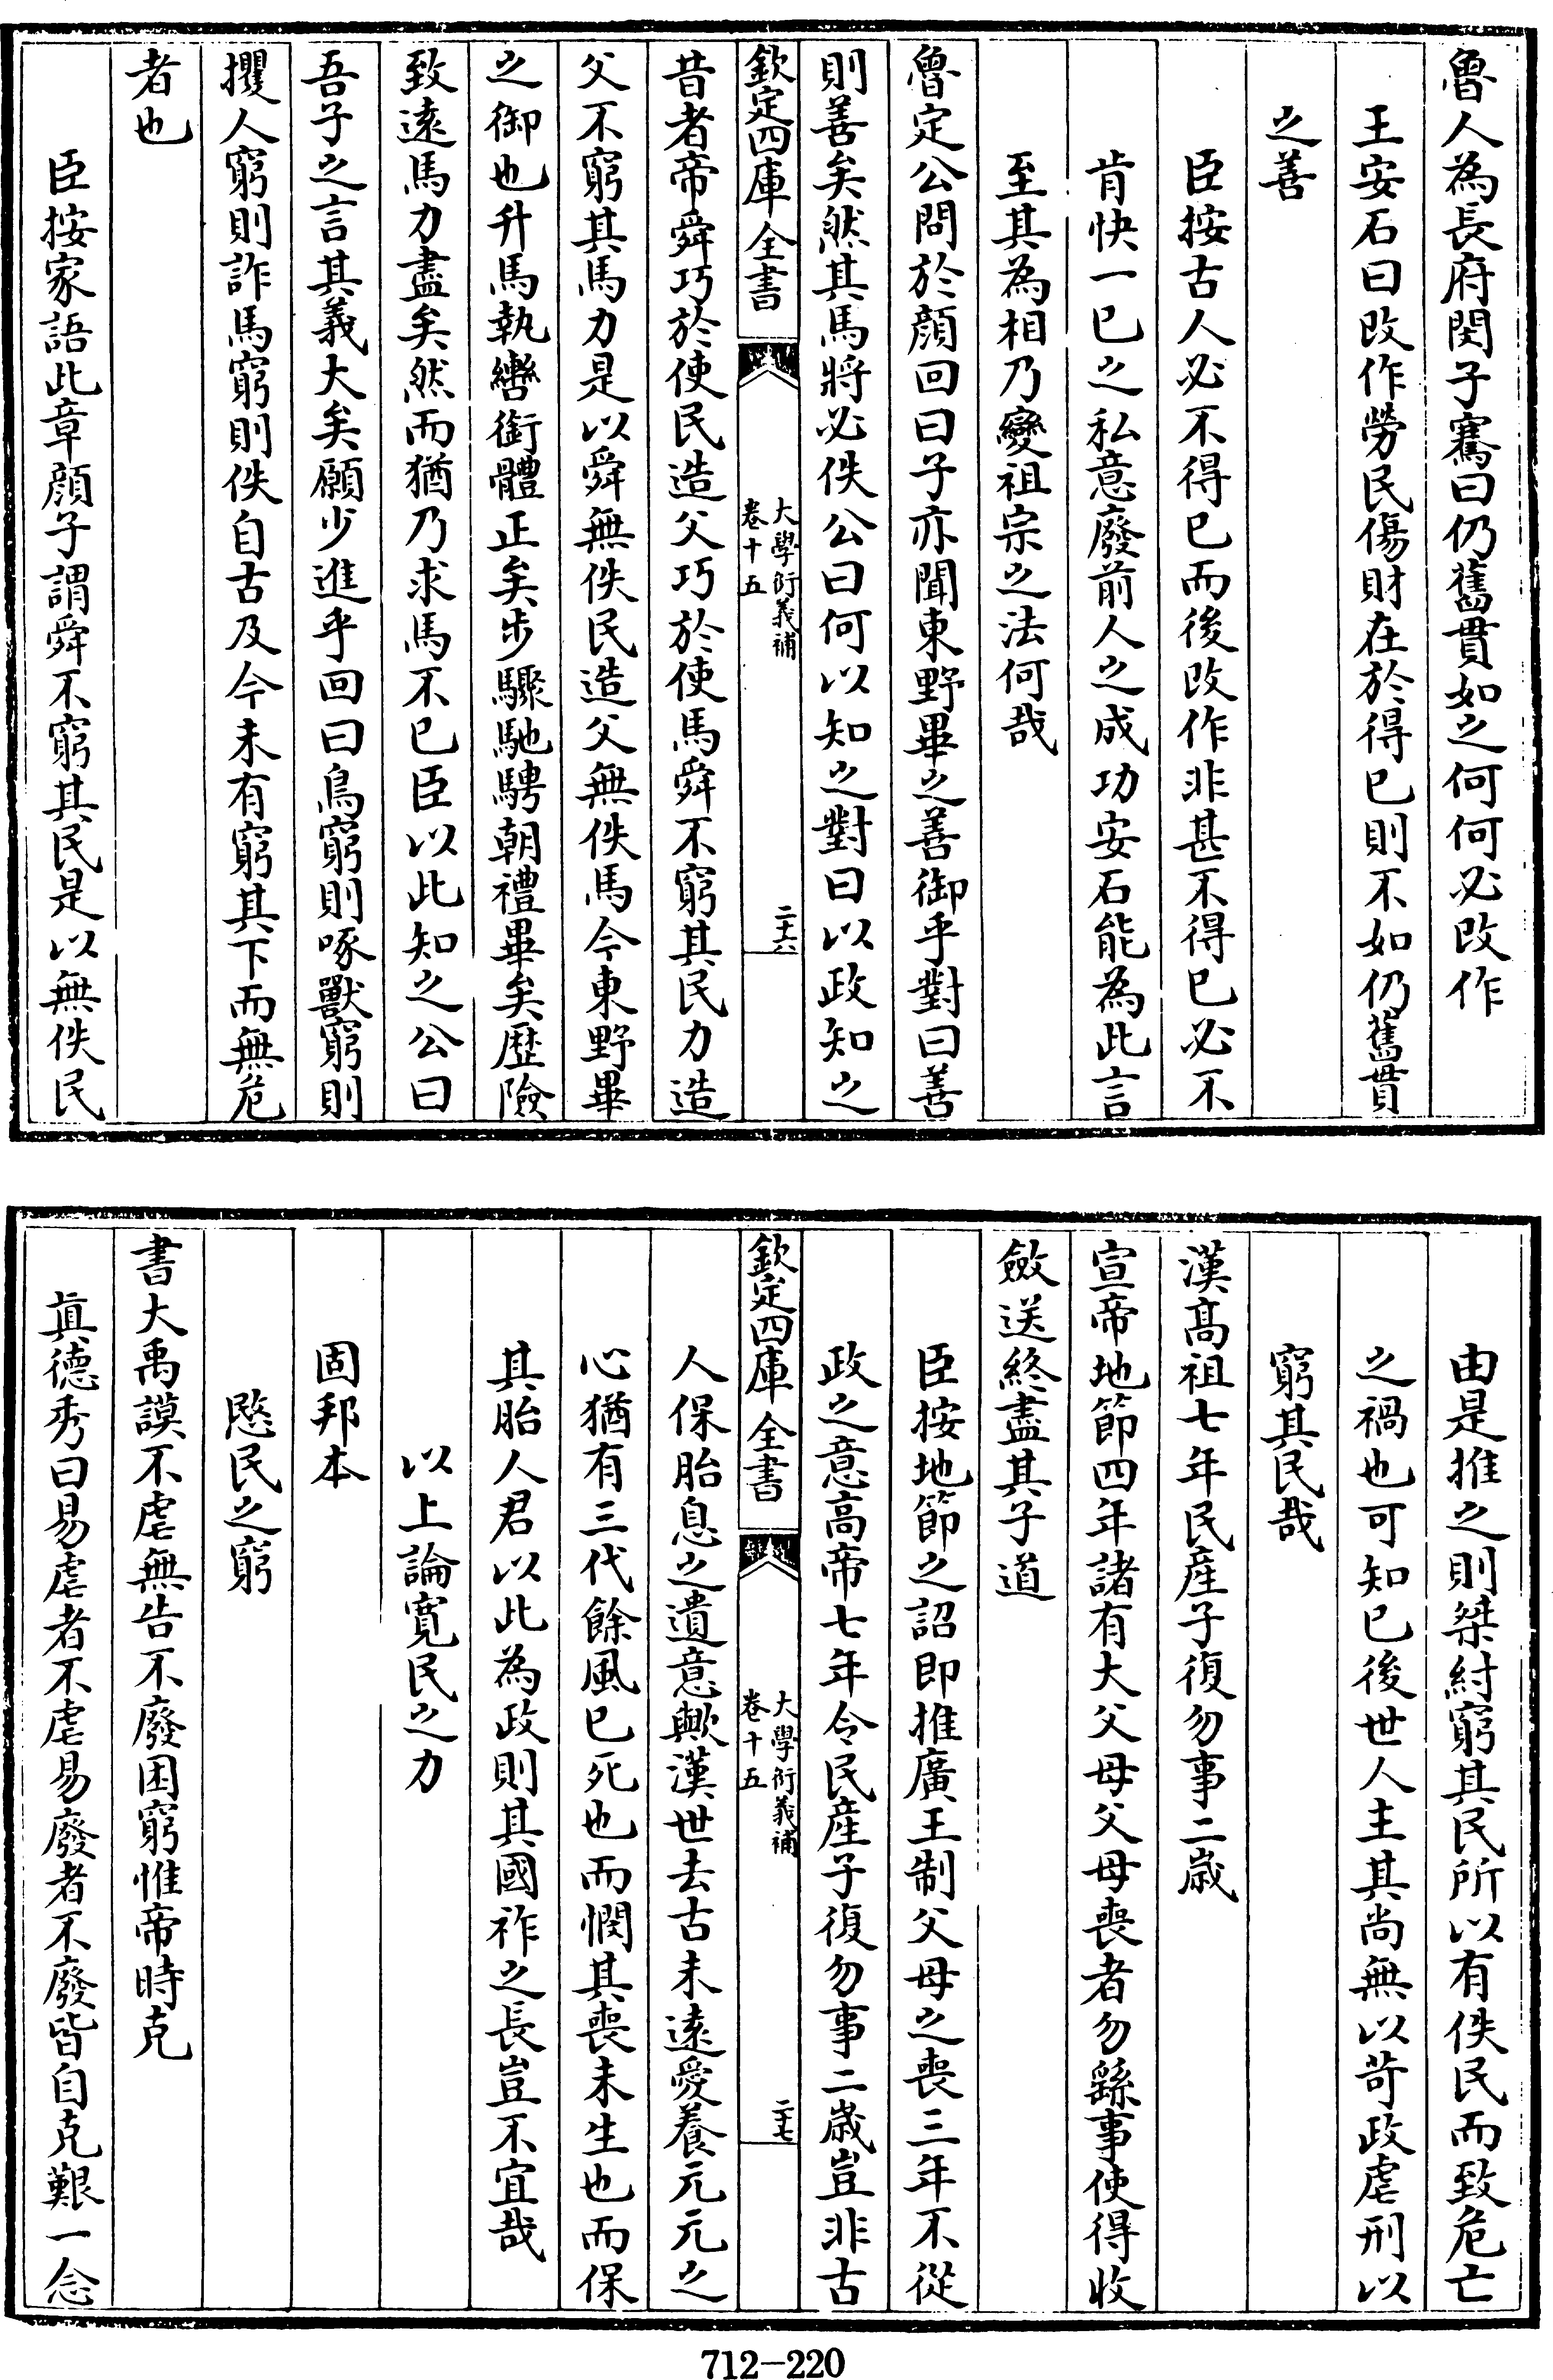 魯人為長府閔子騫曰仍舊貫如之何何必改作
王安石曰改作勞民傷財在於得已則不如仍舊貫
之善
臣按古人必不得已而後改作非甚不得已必不
肯快一已之私意廢前人之成功安石能為此言
至其為相乃變祖宗之法何哉
魯定公問於顔回曰子亦聞東野畢之善御乎對曰善
則善矣然其馬將必佚公曰何以知之對曰以政知之
欽定四庫全書
大學衍義補
卷十五
二十六
昔者帝舜巧於使民造父巧於使馬舜不窮其民力造
父不窮其馬力是以舜無佚民造父無佚馬今東野畢
之御也升馬執轡銜體正矣步驟馳騁朝禮畢矣歴險
致遠馬力盡矣然而猶乃求馬不已臣以此知之公曰
吾子之言其義大矣願少進乎回曰鳥窮則啄獸窮則
攫人窮則詐馬窮則佚自古及今未有窮其下而無危
者也
臣按家語此章顔子謂舜不窮其民是以無佚民
由是推之則桀紂窮其民所以有佚民而致危亡
之禍也可知已後世人主其尚無以苛政虐刑以
窮其民哉
漢髙祖七年民産子復勿事二歲
宣帝地節四年諸有大父母父母喪者勿繇事使得收
斂送終盡其子道
臣按地節之詔即推廣王制父母之喪三年不從
政之意高帝七年令民産子復勿事二歲豈非古
欽定四庫全書
大學衍義補
卷十五
二十七
人保胎息之遺意歟漢世去古未遠愛養元元之
心猶有三代餘風已死也而憫其喪未生也而保
其胎人君以此為政則其國祚之長豈不宜哉
以上論寛民之力
固邦本
愍民之窮
書大禹謨不虐無告不廢困窮惟帝時克
真德秀曰易虐者不虐易廢者不廢皆自克艱一念
712-220